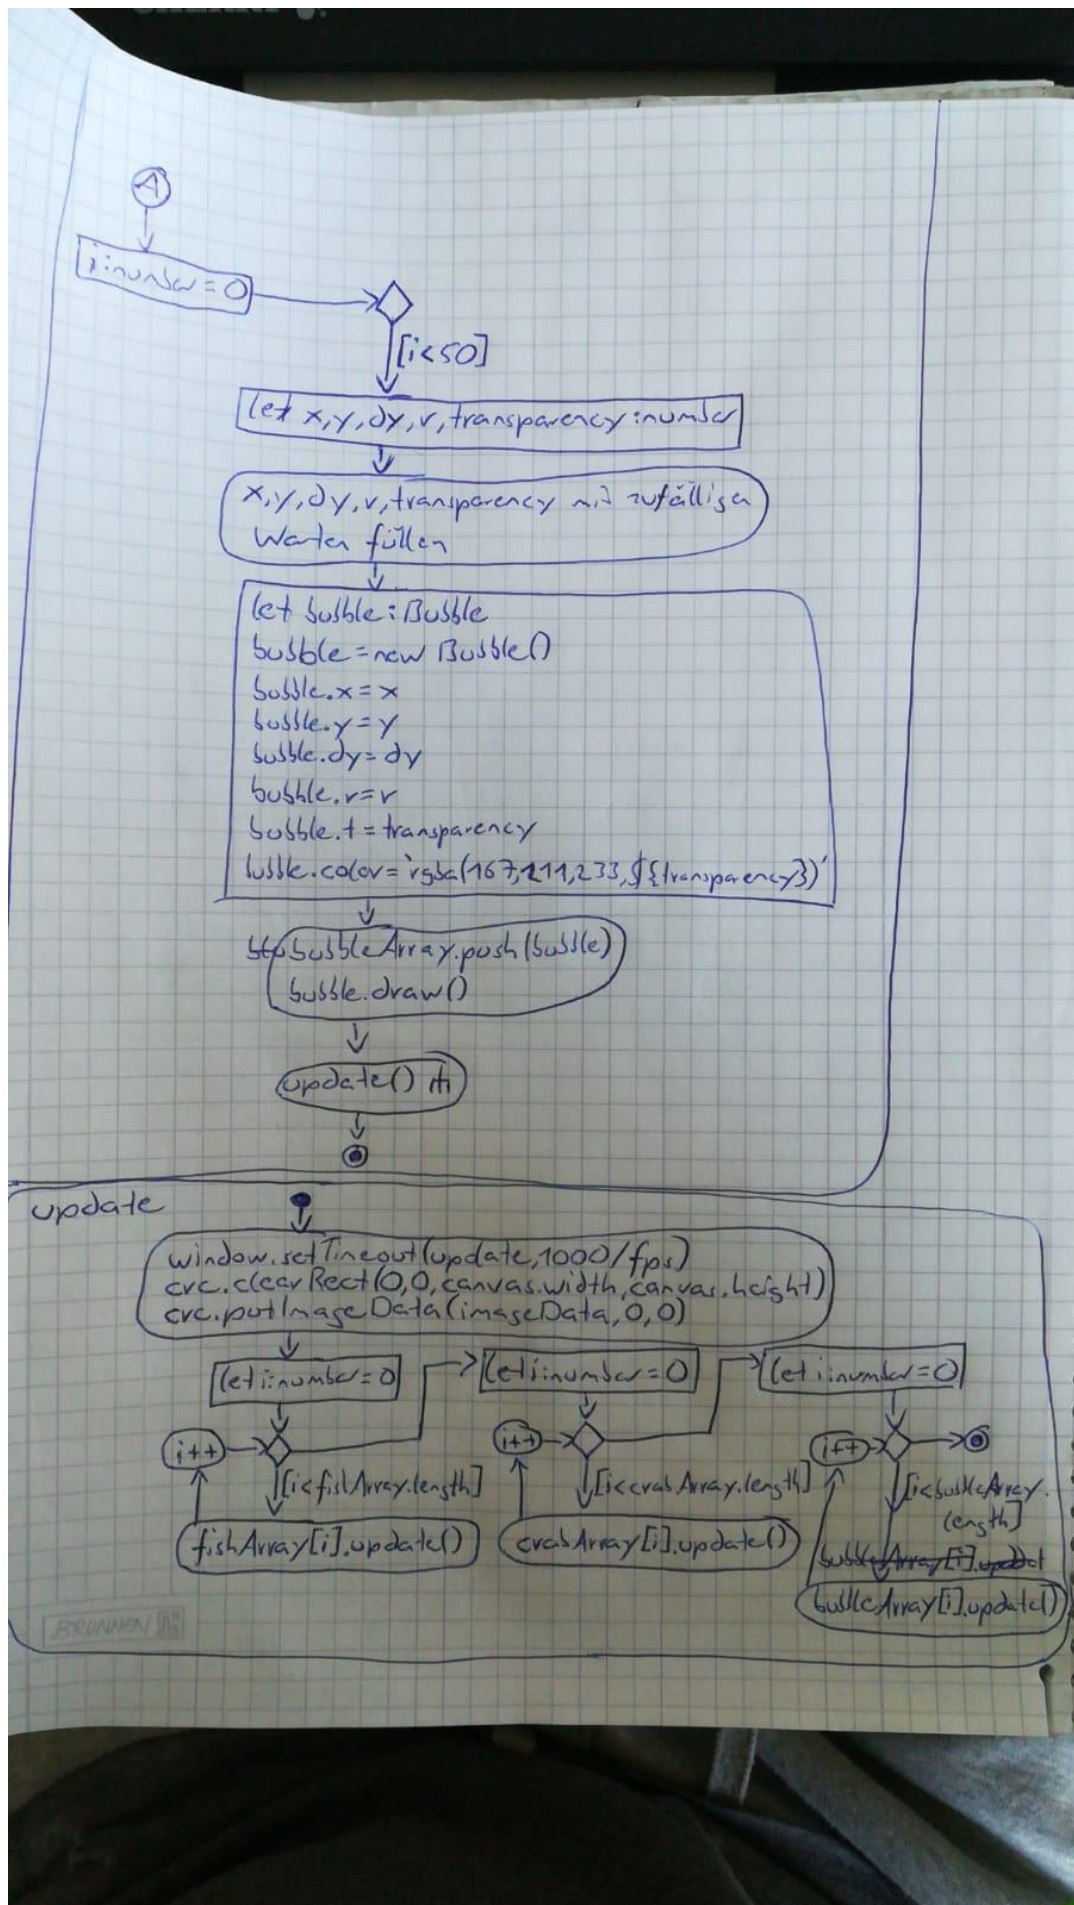 A
i:number=0
[i<50]
let x,y,dy,r,transparency:number
x,y,dy,r,transparency mit zufälligen
Werten füllen
let bubble:Bubble
bubble=new Bubble()
bubble.x=x
bubble.y=y
bubble.dy=dy
bubble.r=r
bubble.t=transparency
bubble.color=`rgba(167,211,233,${transparency})`
bubbleArray.push(bubble)
bubble.draw()
update()
update
window.setTimeout(update,1000/fps)
crc.clearRect(0,0,canvas.width,canvas.height)
crc.putImageData(imageData,0,0)
let i:number=0
let i:number=0
let i:number=0
i++
i++
i++
[i<fishArray.length]
[i<crabArray.length]
[i<bubbleArray.
length]
fishArray[i].update()
crabArray[i].update()
bubbleArray[i].updat
bubbleArray[i].update()
BRUNNEN